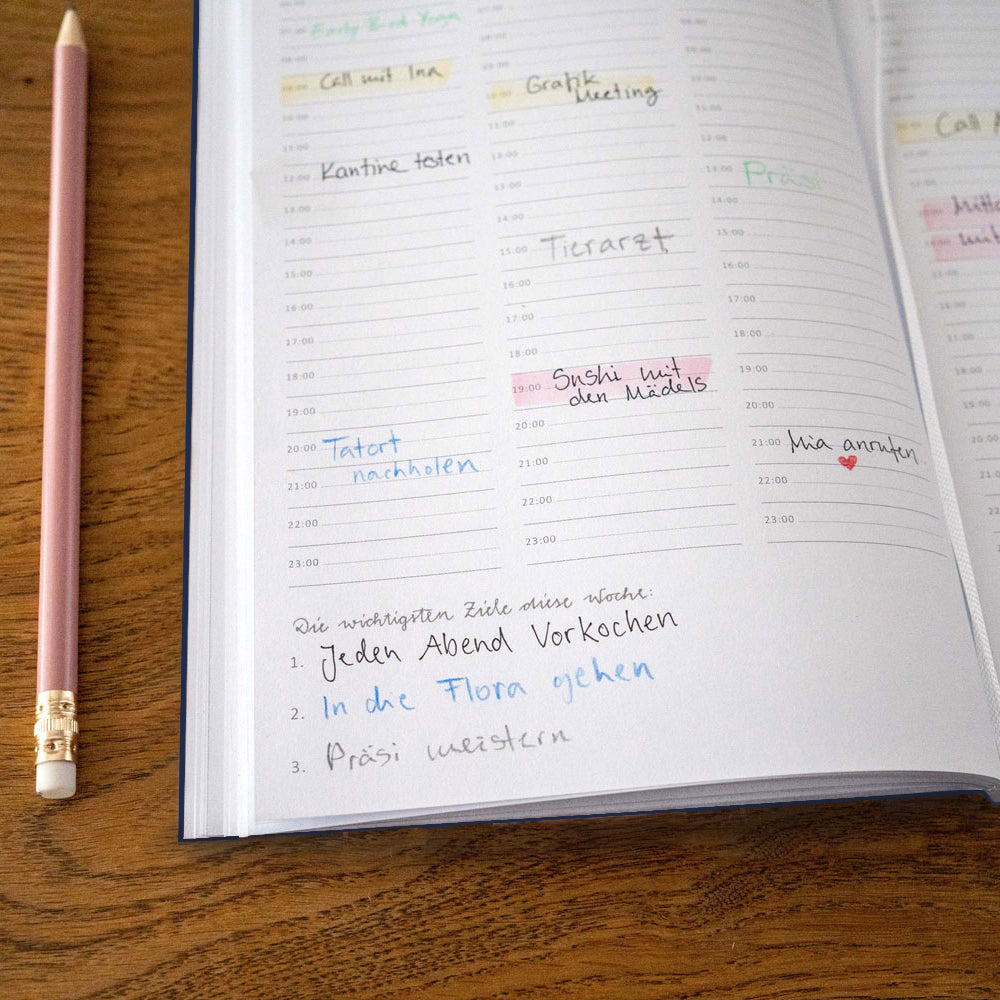 Early Bird Yoga
Call mit Ina
10:00
11:00
12:00 Kantine testen
13:00
14:00
15:00
16:00
17:00
18:00
19:00
20:00 Tatort
nachholen
21:00
22:00
23:00
10:00 Grafik
Meeting
11:00
12:00
13:00
14:00
15:00 Tierarzt
16:00
17:00
18:00
19:00 Sushi mit
den Mädels
20:00
21:00
22:00
23:00
10:00
11:00
12:00
13:00 Präsi
14:00
15:00
16:00
17:00
18:00
19:00
20:00
21:00 Mia anrufen
22:00
23:00
Call
Die wichtigsten Ziele diese Woche:
1. Jeden Abend Vorkochen
2. In die Flora gehen
3. Präsi meistern